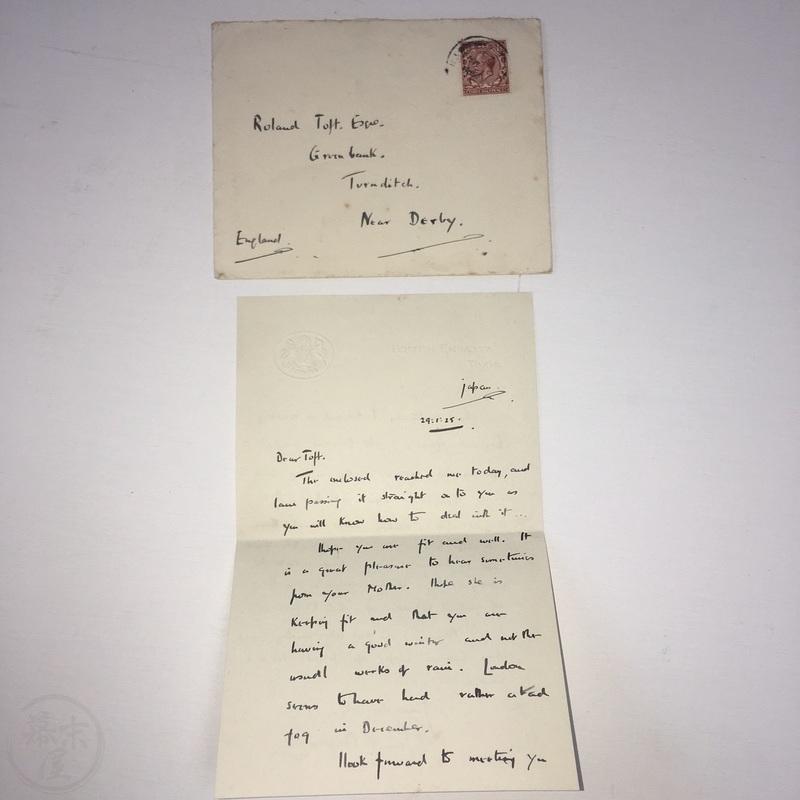 Roland Toft. Esqre.
Greenbank.
Turnditch.
Near Derby.
England.
BRITISH EMBASSY
TOKIO.
Japan.
29:1:25.
Dear Toft.
The enclosed reached me today, and
I am passing it straight on to you as
you will know how to deal with it...
I hope you are fit and well. It
is a great pleasure to hear sometimes
from your Mother. I hope she is
keeping fit and that you are
having a good winter and not the
usual weeks of rain. London
seems to have had rather a bad
fog in December.
I look forward to meeting you
幕末
屋